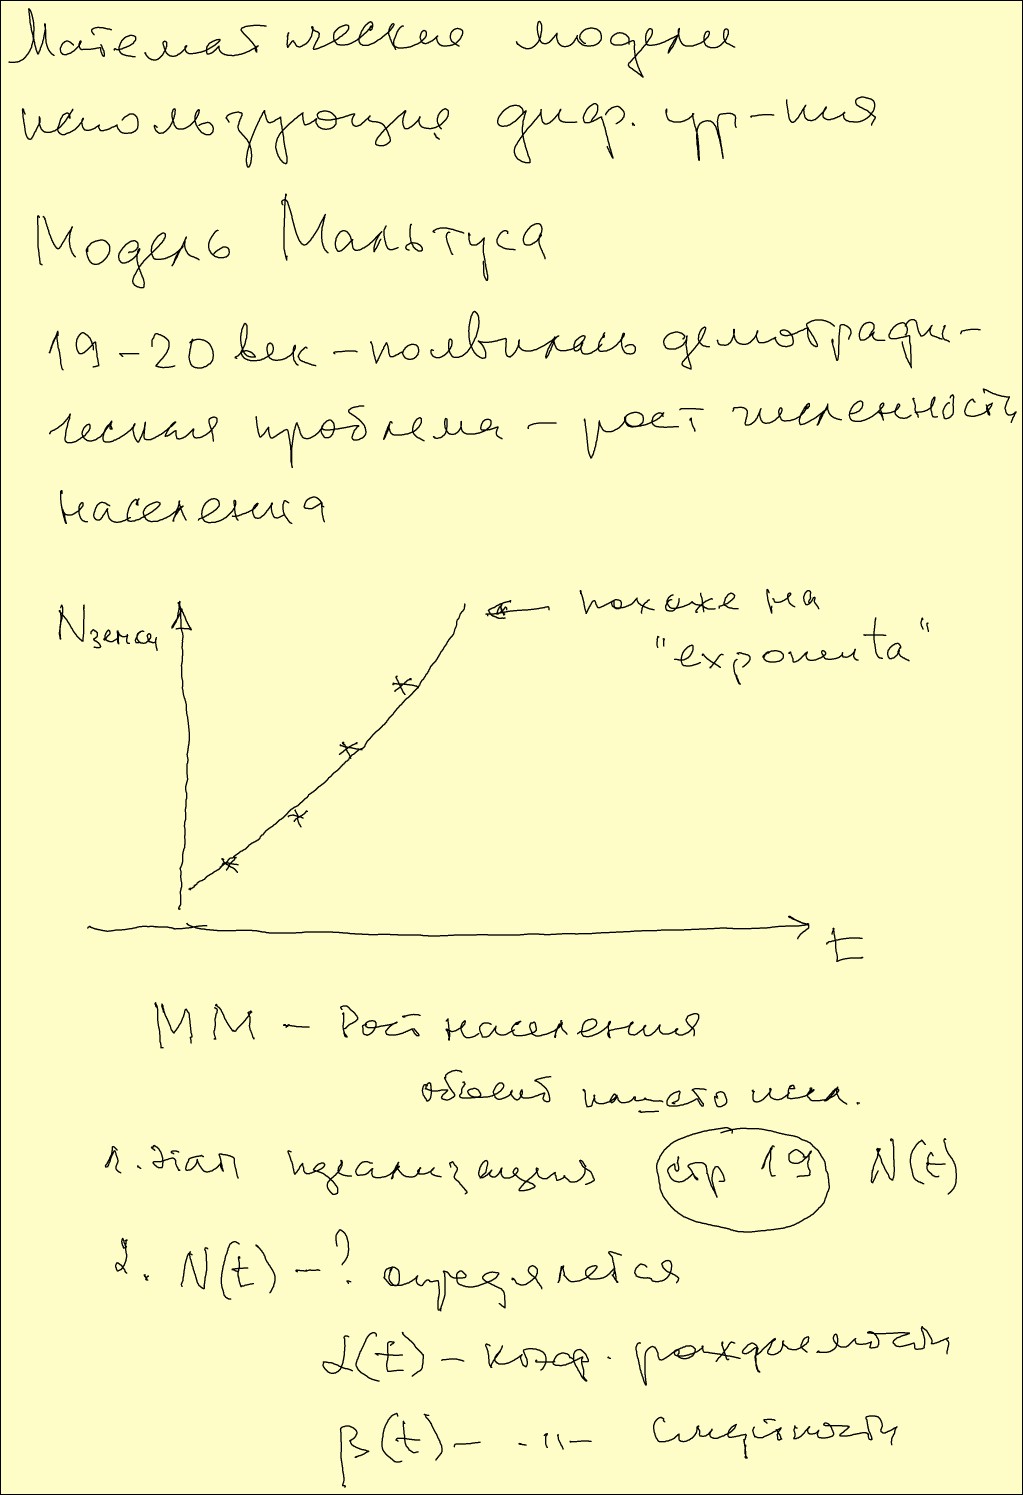 Математические модели
использующие диф. ур-ния
Модель Мальтуса
19-20 век - появилась демографи-
ческая проблема - рост численности
населения
N земли
похоже на
"exponenta"
t
ММ - Рост населения
объект нашего иссл.
1. Этап идеализация стр 19 N(t)
2. N(t) - ? определяется
α(t) - коэф. рождаемости
β(t) - -"- смертности